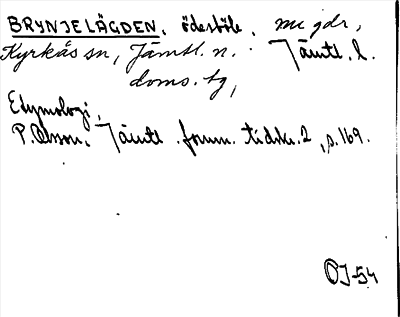 BRYNJELÄGDEN, ödesböle, me gdr,
Kyrkås sn, Jämtl. n. Jämtl. l.
doms. tg,
Etymologi,
P. Olsson, Jämtl. fornm. tidskr. 2, s. 169.
OJ-54